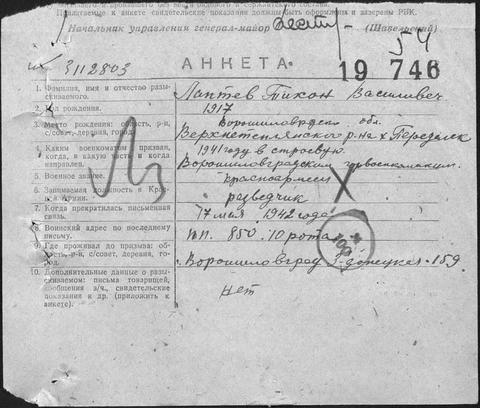 Прилагаемые к анкете свидетельские показания должны быть оформлены и заверены РВК.
Начальник управления генерал-майор (Шавельский)
54
№ 3112803 АНКЕТА 19 746
1. Фамилия, имя и отчество разыскиваемого. Лаптев Тихон Василивеч
2. Год рождения. 1917
3. Место рождения: область, р-н, с/совет, деревня, город. Ворошиловградск. обл.
Верхнетеплянского р-на х Передельск
4. Каким военкоматом призван, когда, в какую часть и когда направлен. 1941 году в строевую
Ворошиловградским горвоенкоматом.
5. Военное звание. Красноармеец
6. Занимаемая должность в Красной Армии. разведчик
7. Когда прекратилась письменная связь. 17 мая 1942 года
8. Воинский адрес по последнему письму. пп. 850. 10 рота
9. Где проживал до призыва: область, р-н, с/совет, деревня, город. Ворошиловград Донецкая 159
10. Дополнительные данные о разыскиваемом: письма товарищей, сообщения в/ч., свидетельские показания и др. (приложить к анкете). нет